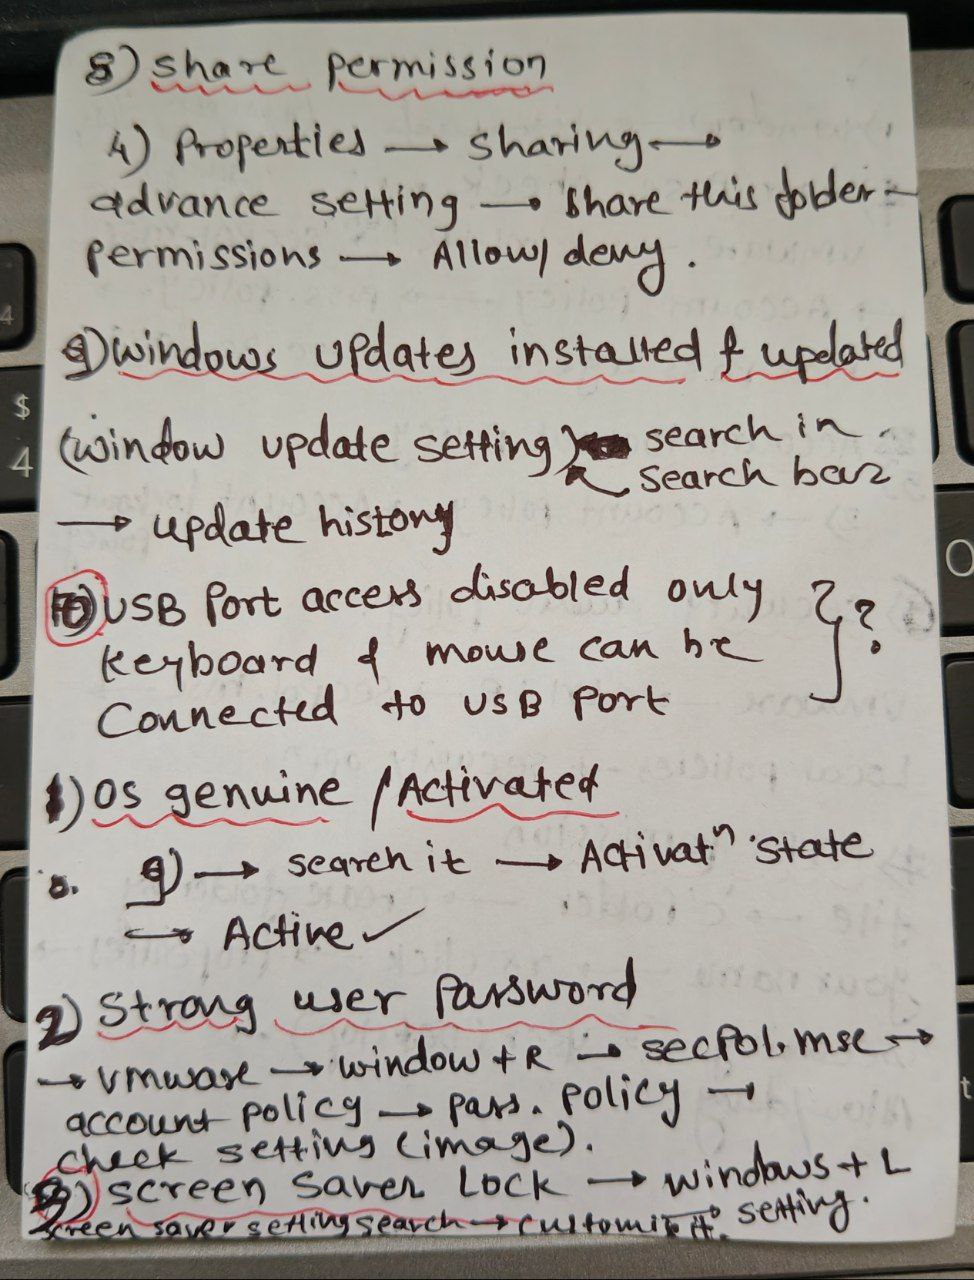 8) share permission
4) Properties → sharing →
advance setting → share this folder →
permissions → Allow/ deny.
9) windows updates installed & updated
(window update setting) search in
search bar
→ update history
10) USB Port access disabled only
keyboard & mouse can be
Connected to USB Port
} ?
1) OS genuine / Activated
9) → search it → Activatⁿ state
→ Active ✓
2) Strong user Password
→ vmware → window + R → secpol.msc →
account policy → pass. policy →
check setting (image).
3) screen saver Lock → windows + L
screen saver setting search → customize it. setting.
$
4
4
O
t